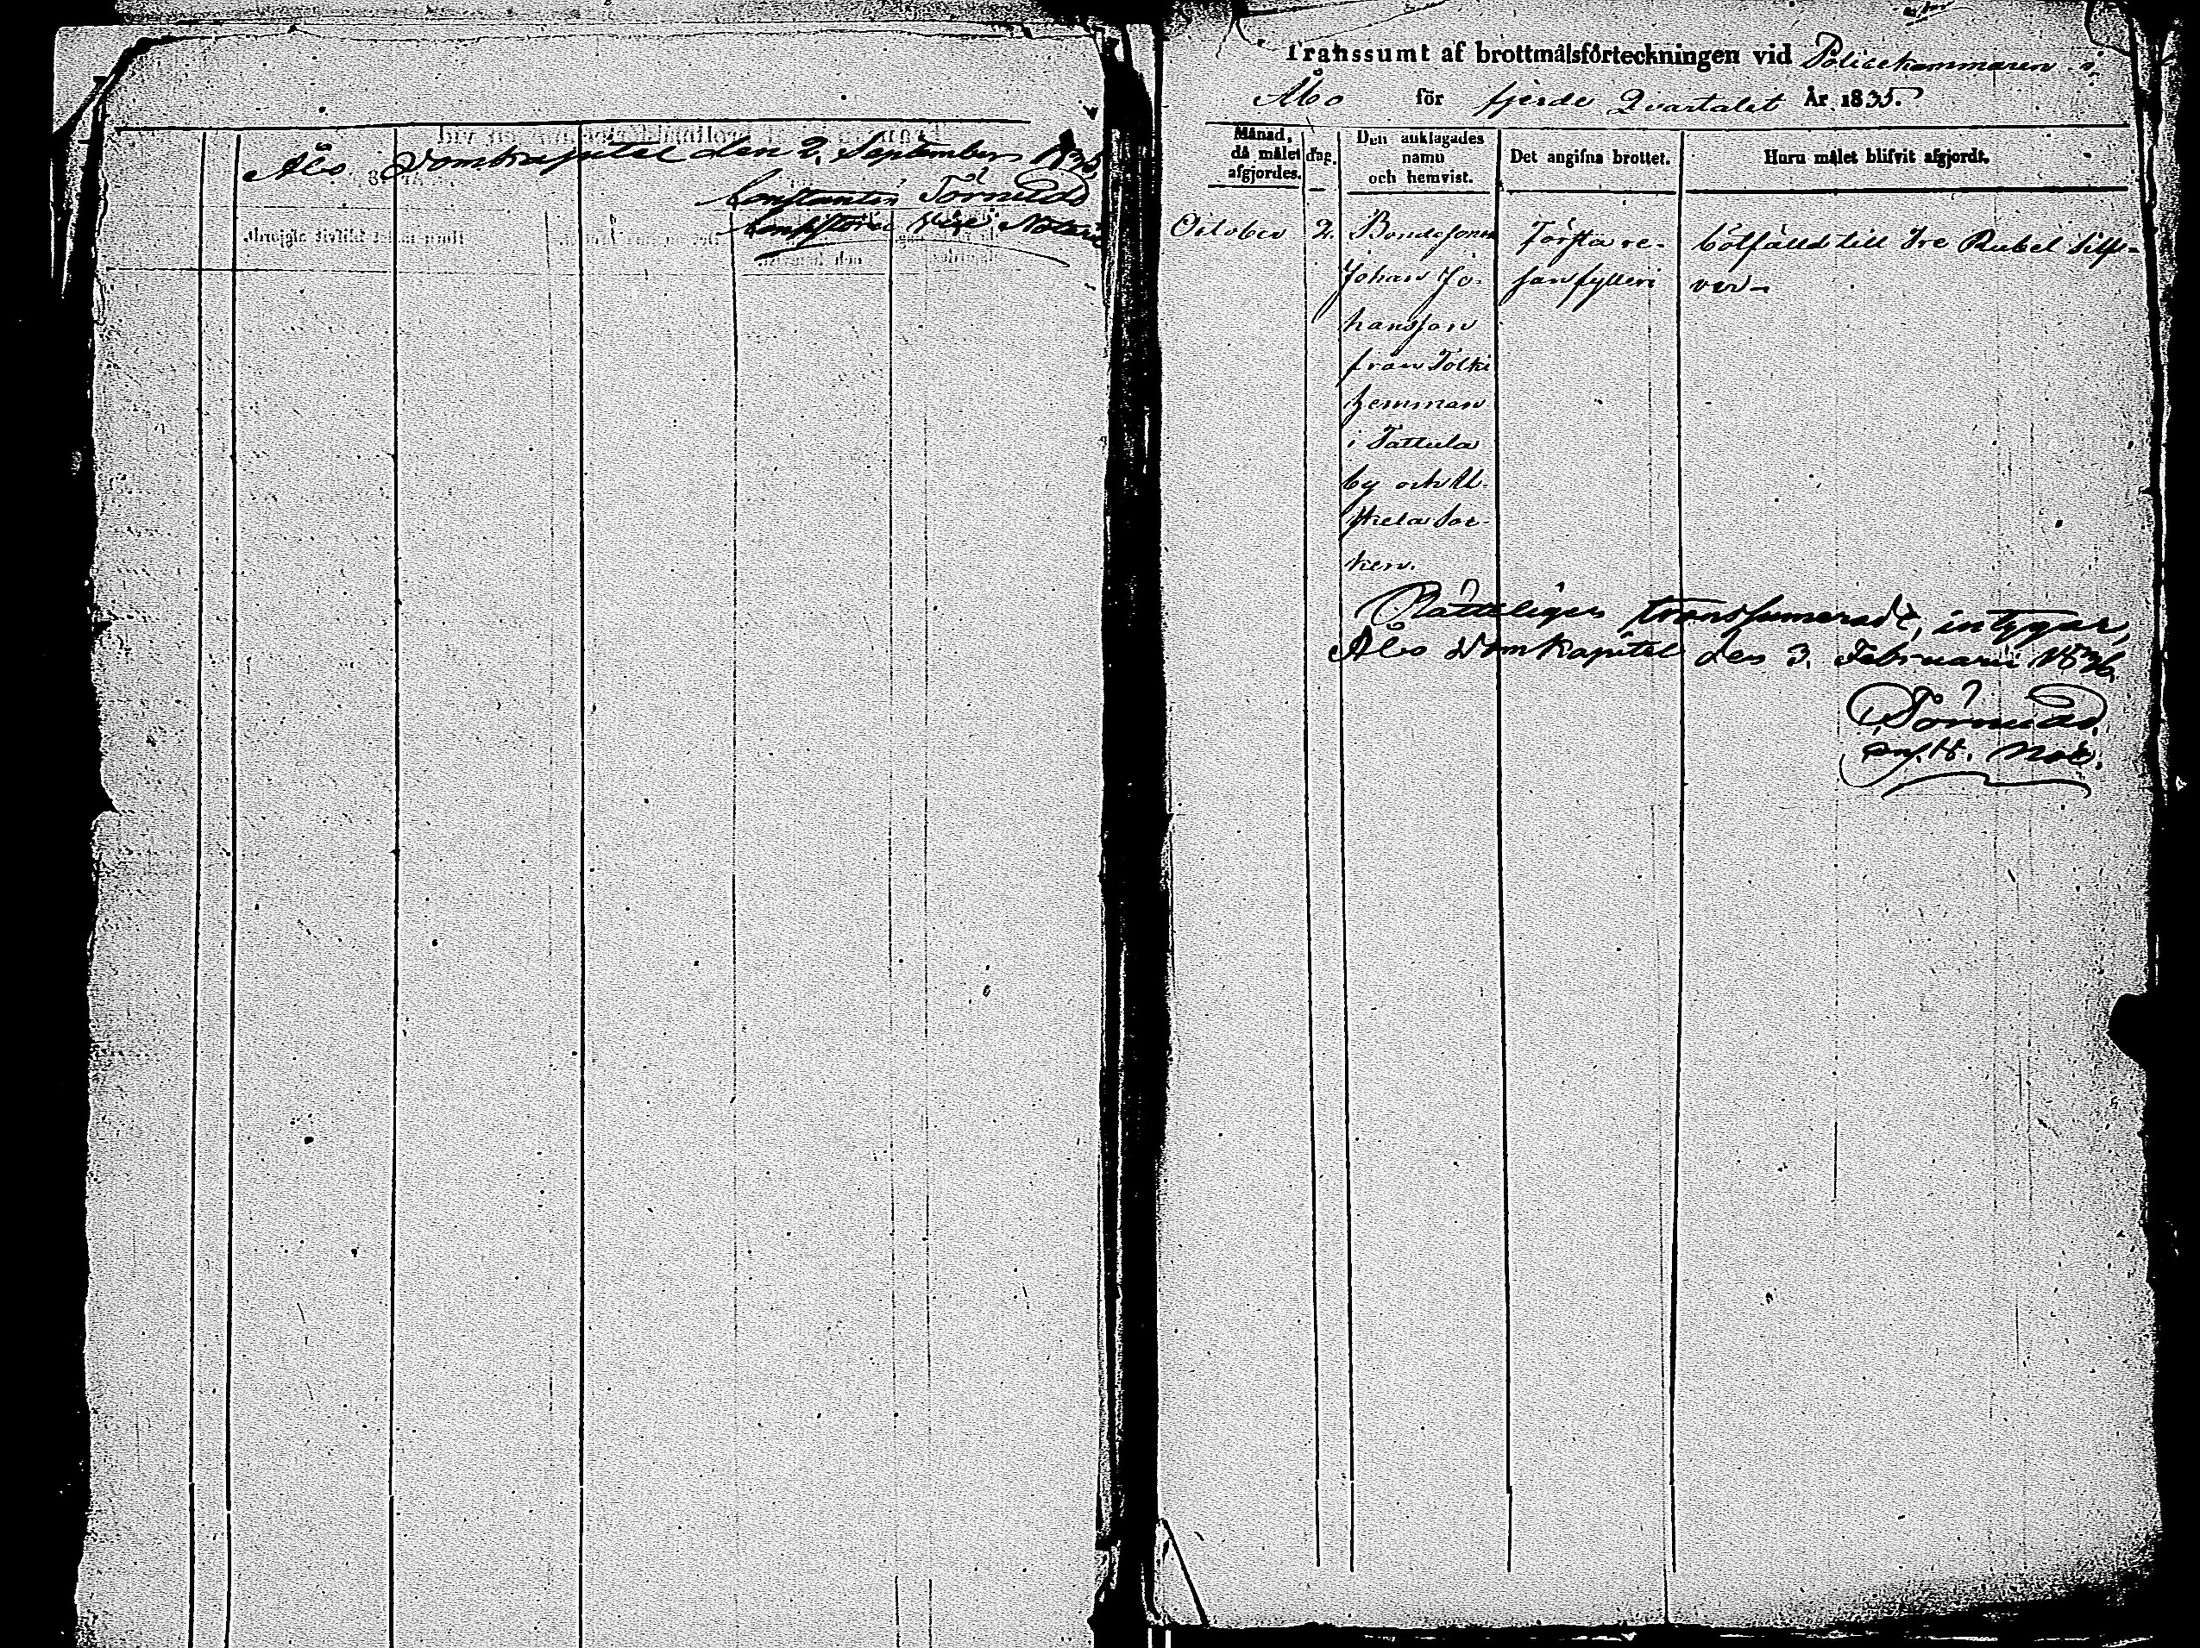 Åbo Domkapitel den 2. September 1835.
Constantin Törnudd
Consistorii Vice Notarie
Transsumt af brottmålsförteckningen vid Policekammaren i
Åbo för fjerde Qvartalet År 1835.
Månad, då målet afgjordes.
dag.
Den anklagades namn och hemvist.
Det angifna brottet.
Huru målet blifvit afgjordt.
October 2. Bondesonen Första re- bötfälld till Tre Rubel Silf-
Johan Jo- san fylleri ver
hansson
från Tolki
hemman
i Tattula
by och U-
skela Soc-
ken.
Rätteligen transsumeradt, intygar,
Åbo Domkapitel den 3. Februarii 1836.
C. Törnudd.
Not.